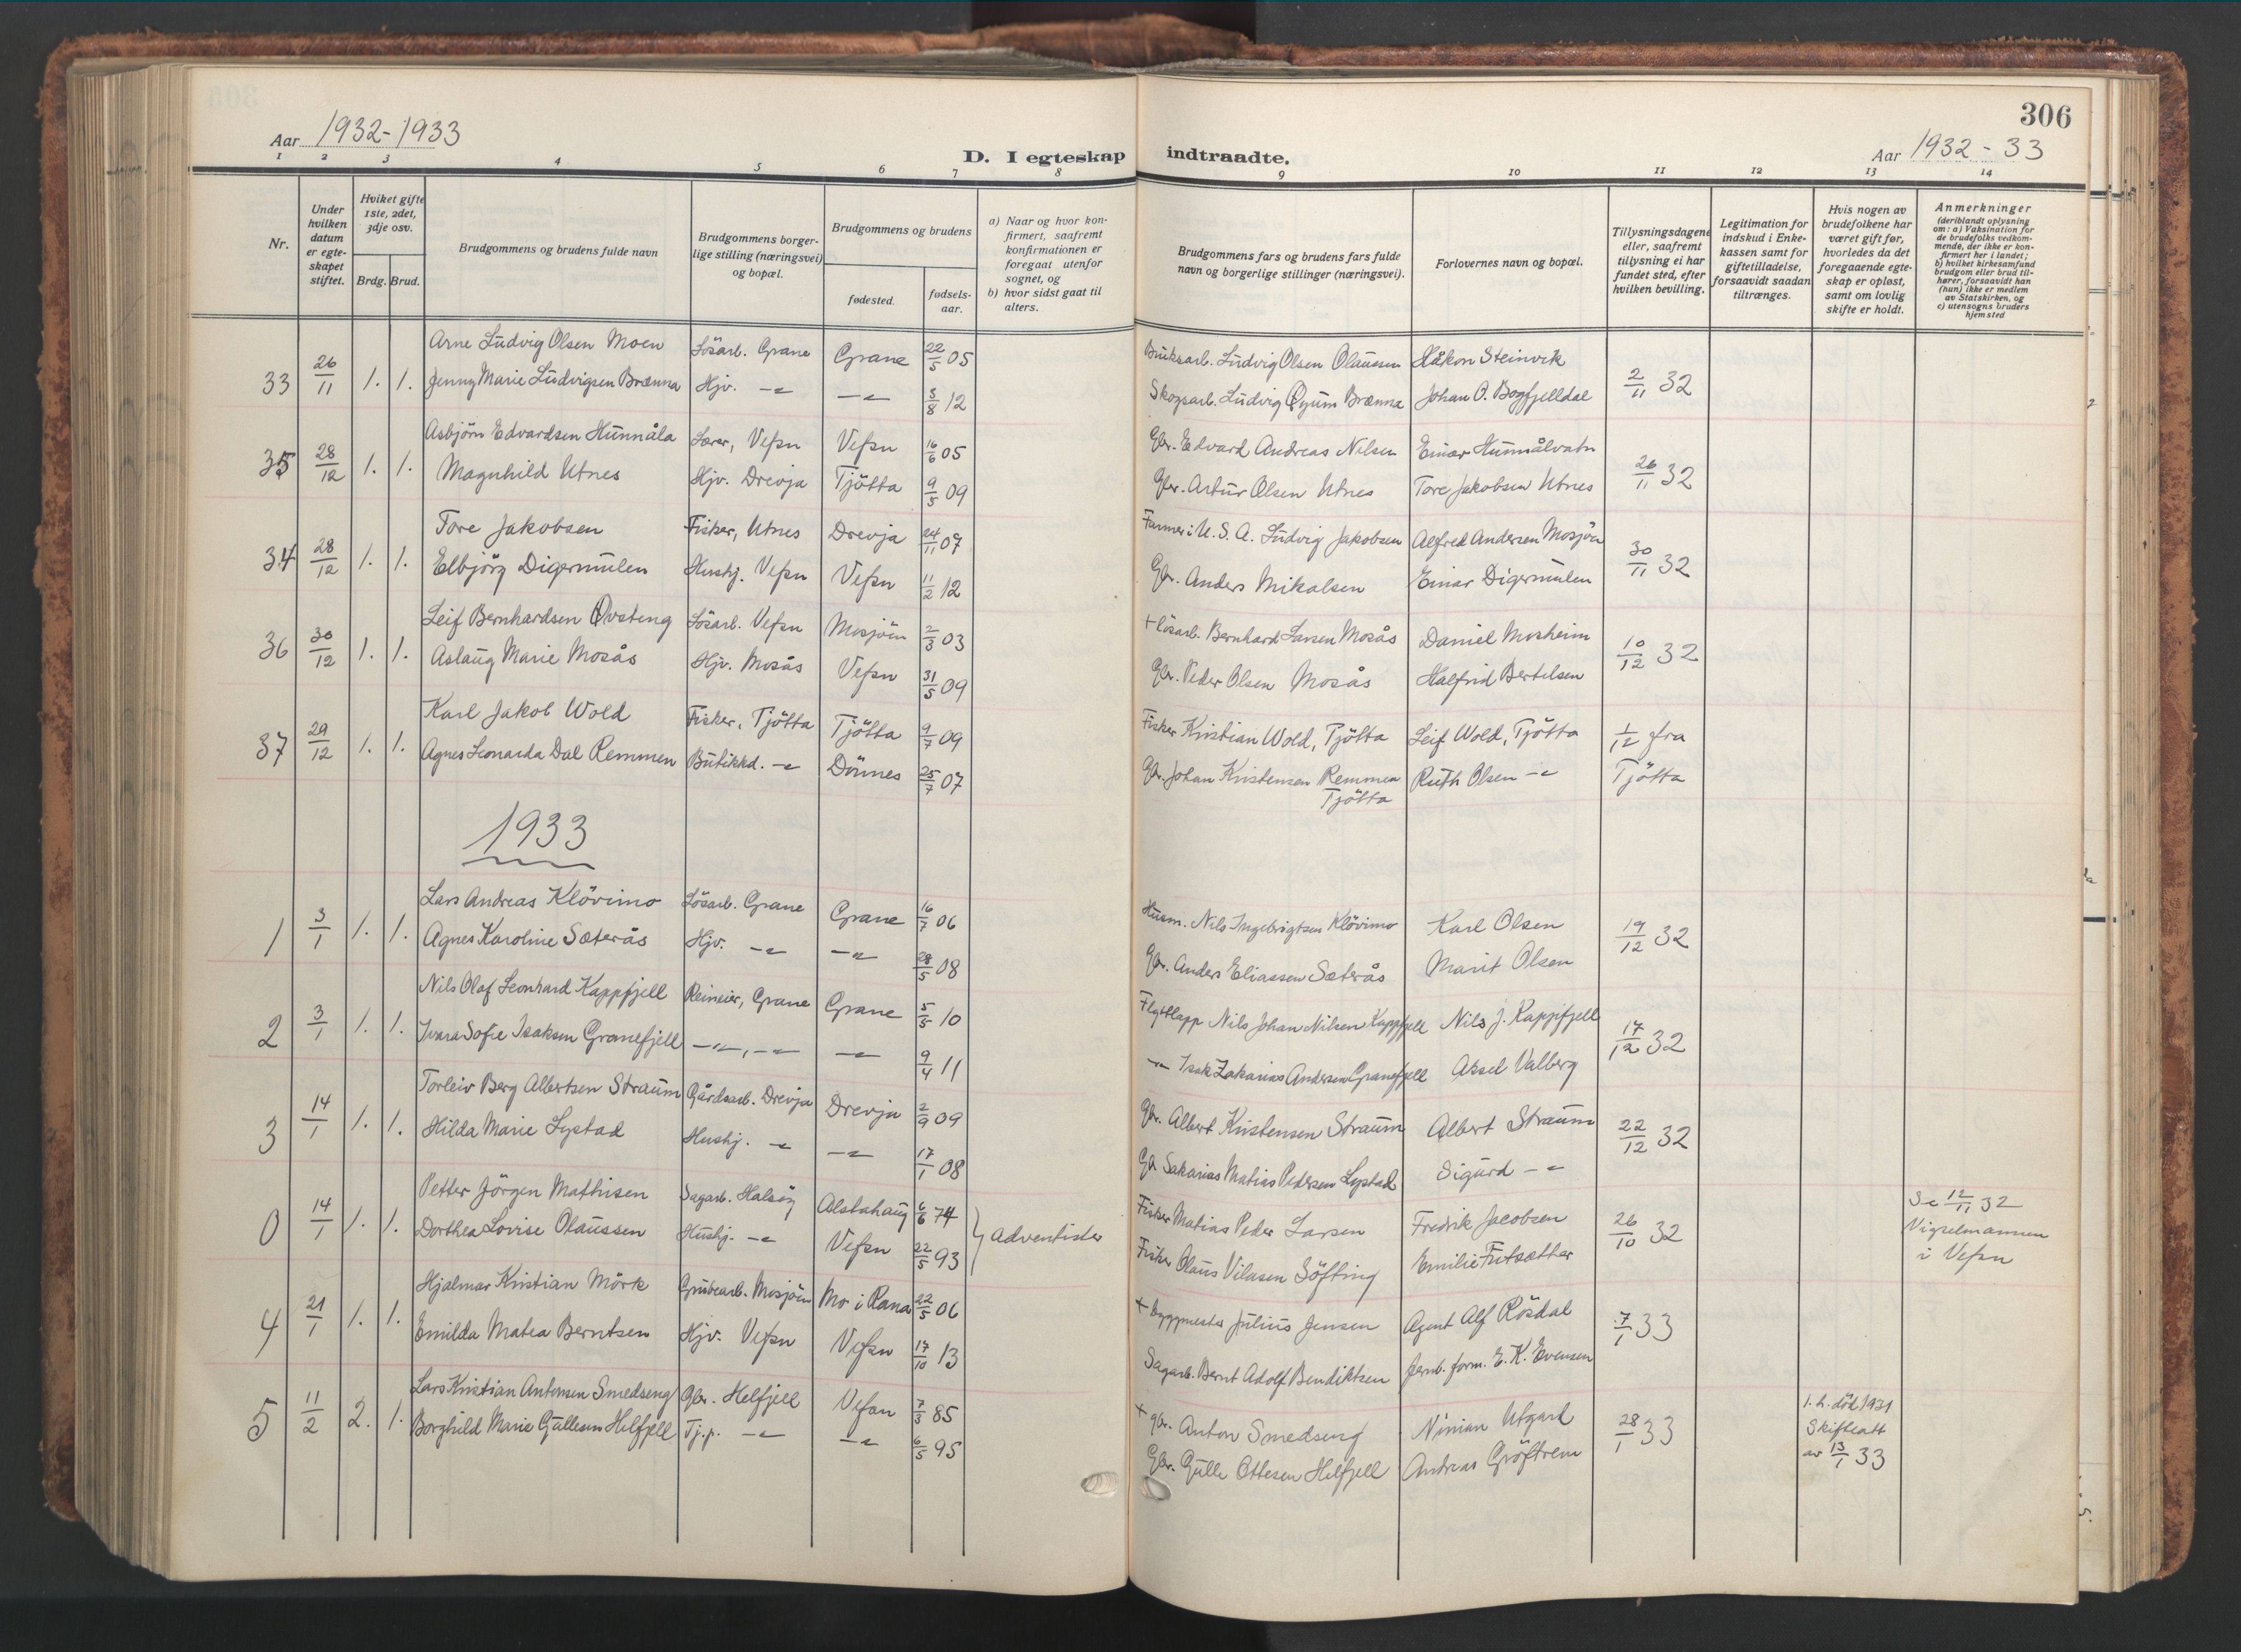 306
Aar 1932-1933
Aar 1932-33
D. I egteskap indtraadte.
1 2 3 4 5 6 7 8 9 10 11 12 13 14
Nr.
Under hvilken datum er egteskapet stiftet.
Hviket gifte 1ste, 2det, 3dje osv.
Brdg. Brud.
Brudgommens og brudens fulde navn
Brudgommens borgerlige stilling (næringsvei) og bopæl.
Brudgommens og brudens
fødested.
fødselsaar.
a) Naar og hvor konfirmert, saafremt konfirmationen er foregaat utenfor sognet, og
b) hvor sidst gaat til alters.
Brudgommens fars og brudens fars fulde navn og borgerlige stillinger (næringsvei).
Forlovernes navn og bopæl.
Tillysningsdagene eller, saafremt tillysning ei har fundet sted, efter hvilken bevilling.
Legitimation for indskud i Enkekassen samt for giftetilladelse, forsaavidt saadan tiltrænges.
Hvis nogen av brudefolkene har været gift før, hvorledes da det foregaaende egteskap er opløst, samt om lovlig skifte er holdt.
Anmerkninger
(deriblandt oplysning om: a) Vaksination for de brudefolks vedkommende, der ikke er konfirmert her i landet; b) hvilket kirkesamfund brudgom eller brud tilhører, forsaavidt han (hun) ikke er medlem av Statskirken, og c) utensogns bruders hjemsted
33 26/11 1. 1. Arne Ludvig Olsen Moen Lösarb. Grane Grane 22/5 05 Bruksarb. Ludvig Olsen Olaussen Håkon Steinvik 2/11 32
Jenny Marie Ludvigsen Brænna Hjv. -"- -"- 3/8 12 Skogsarb. Ludvig Øyum Brænna Johan O. Bogfjelldal
35 28/12 1. 1. Asbjörn Edvardsen Hunnåla Lærer, Vefsn Vefsn 16/6 05 Gbr. Edvard Andreas Nilsen Einar Hunnålvatn 26/11 32
Magnhild Utnes Hjv. Drevja Tjötta 9/5 09 Gbr. Artur Olsen Utnes Tore Jakobsen Utnes
34 28/12 1. 1. Tore Jakobsen Fisker, Utnes Drevja 24/11 07 Farmer i U.S.A. Ludvig Jakobsen Alfred Andersen Mosjön 30/11 32
Elbjörg Digermulen Hushj. Vefsn Vefsn 11/2 12 Gbr. Anders Mikalsen Einar Digermulen
36 30/12 1. 1. Leif Bernhardsen Øvsteng Lösarb. Vefsn Mosjöen 2/3 03 + lösarb. Bernhard Larsen Mosås Daniel Mosheim 10/12 32
Aslaug Marie Mosås Hjv. Mosås Vefsn 31/5 09 Gbr. Peder Olsen Mosås Halfrid Bertelsen
37 29/12 1. 1. Karl Jakob Wold Fisker, Tjötta Tjötta 9/7 09 Fisker Kristian Wold, Tjötta Leif Wold, Tjötta 1/12 fra
Agnes Leonarda Dal Remmen Butikkd. -"- Dönnes 25/7 07 Gbr. Johan Kristensen Remmen Ruth Olsen -"- Tjötta
Tjötta
1933
1 3/1 1. 1. Lars Andreas Klövimo Lösarb. Grane Grane 16/7 06 Husm. Nils Ingebrigtsen Klövimo Karl Olsen 19/12 32
Agnes Karoline Sæterås Hjv. -"- -"- 28/5 08 Gbr. Anders Eliassen Sæterås Marit Olsen
2 3/1 1. 1. Nils Olaf Leonhard Kappfjell Reineier, Grane Grane 5/5 10 Flyttlapp Nils Johan Nilsen Kappfjell Nils J. Kappfjell 17/12 32
Ivara Sofie Isaksen Granefjell -"-, -"- -"- 9/4 11 -"- Isak Zakarias Andersen Granefjell Aksel Valberg
3 14/1 1. 1. Torleiv Berg Albertsen Straum Gårdsarb. Drevja Drevja 2/9 09 Gbr. Albert Kristensen Straum Albert Straum 22/12 32
Hilda Marie Lystad Hushj. -"- -"- 17/1 08 Gbr Sakarias Matias Pedersen Lystad Sigurd -"-
0 14/1 1. 1. Petter Jörgen Mathisen Sagarb. Halsöy Alstahaug 6/6 74 Adventister Fisker Matias Peder Larsen Fredrik Jacobsen 26/10 32 Se 12/11 32
Dorthea Lovise Olaussen Hushj. -"- Vefsn 22/5 93 Fisker Olaus Vilasen Söfting Emilie Futsætter Vigselmannen
i Vefsn
4 21/1 1. 1. Hjalmar Kristian Mörk Grubearb. Mosjöen Mo i Rana 22/5 06 + byggmester Julius Jensen Agent Alf Rösdal 7/1 33
Emilda Matea Berntsen Hjv. Vefsn Vefsn 17/10 13 Sagarb. Bernt Adolf Bendiktsen Jernb. form. E. K. Evensen
5 11/2 2. 1. Lars Kristian Antonsen Smedseng Gbr. Helfjell Vefsn 7/3 85 + gbr. Anton Smedseng Ninian Utgård 28/1 33 1. h. död 1931
Borghild Marie Gullesen Helfjell Tj.p. -"- -"- 6/5 95 Gbr. Gulle Ottesen Helfjell Andreas Gröftrem Skifteatt
av 13/1 33